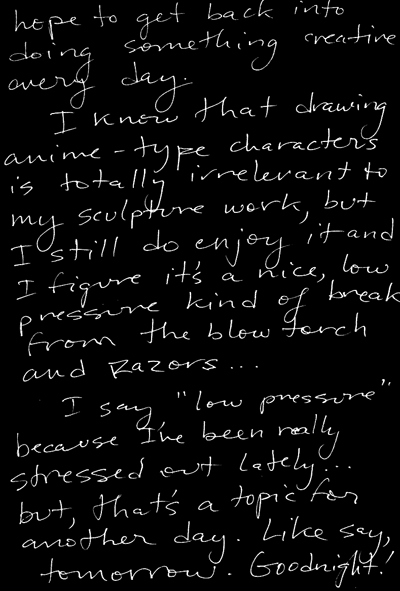 hope to get back into
doing something creative
every day.
I know that drawing
anime-type characters
is totally irrelevant to
my sculpture work, but
I still do enjoy it and
I figure it's a nice, low
pressure kind of break
from the blow torch
and razors...
I say "low pressure"
because I've been really
stressed out lately...
but, that's a topic for
another day. Like say,
tomorrow. Goodnight!